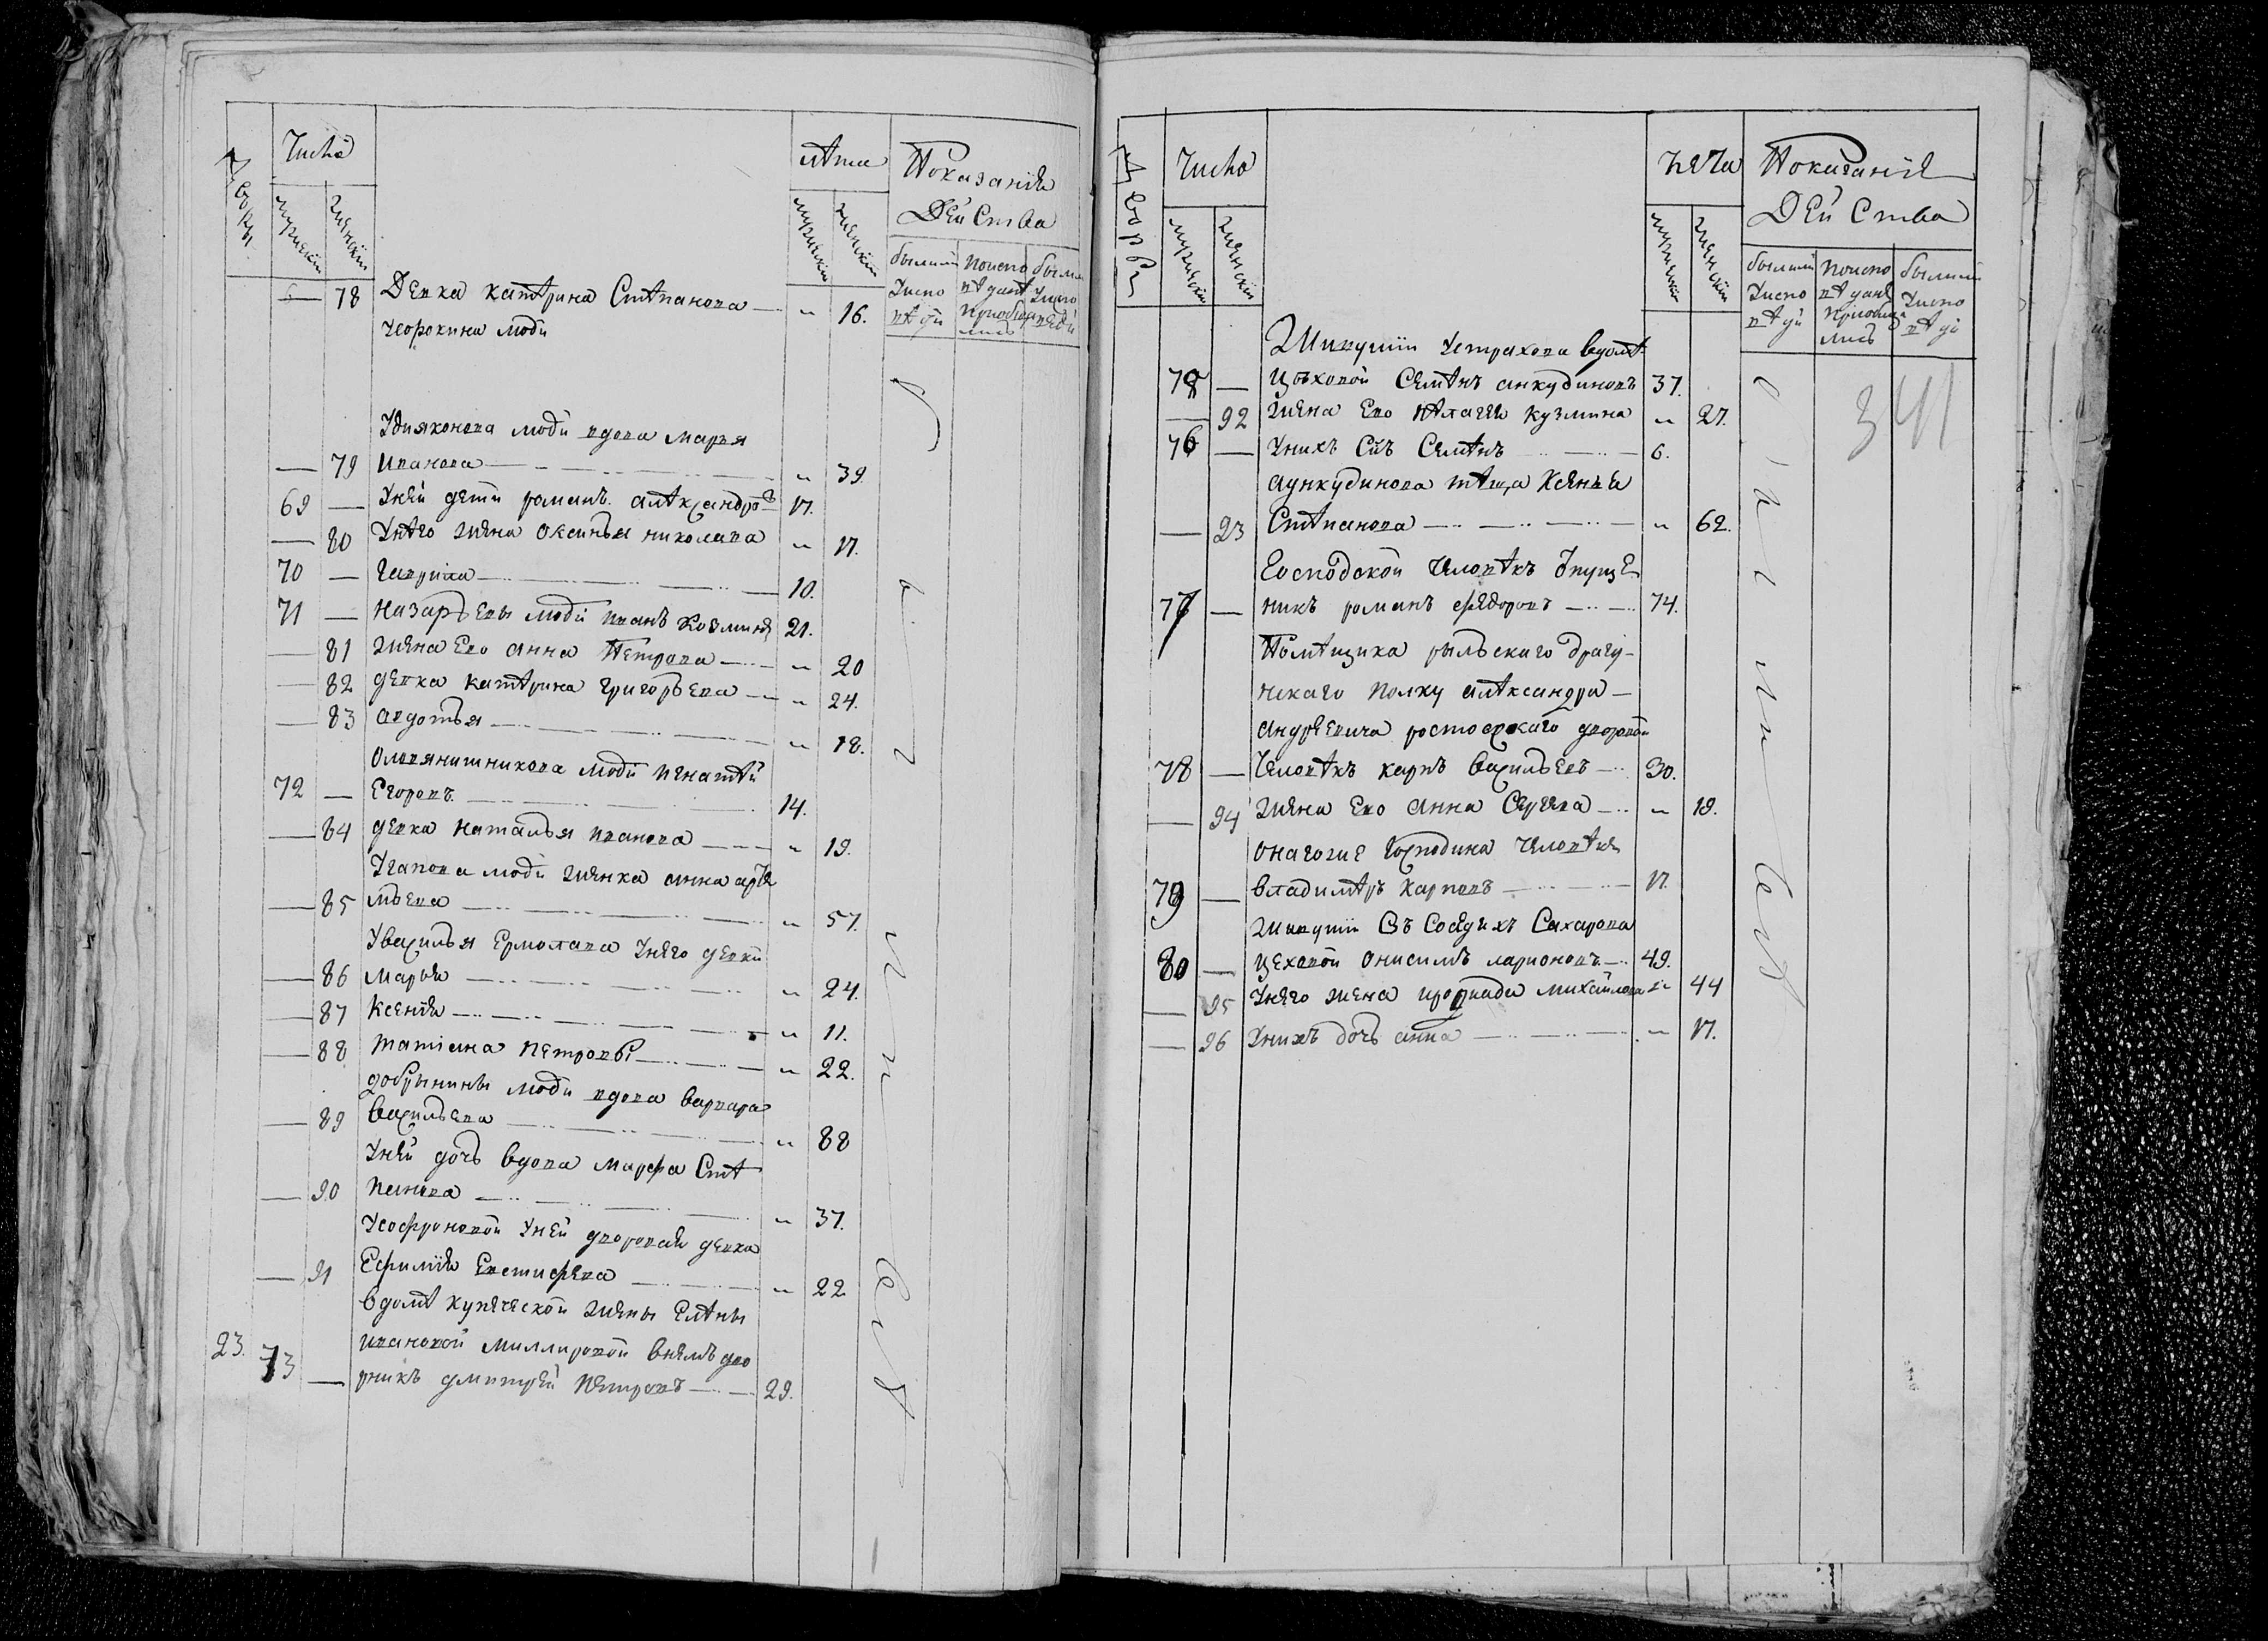 Число
лѣта
Показанія
Дворы
Дѣйства
мужескій
женскій
мужескій
женскій
былили
Уиспо
вѣди
поиспо
вѣданѣ
приобща
лись
78 Девка катѣрина Стѣпанова — „ 16.
Усорокина люди
Удияконова люди вдова марья
— 79 Иванова — „ 39
69 — Уней дети романъ алѣксандровъ 17.
— 80 Унѣго жена оксинья николава „ 17.
70 — Гаврила — 10.
71 — Назарьевы люди иванъ козминъ 21.
— 81 жена Ево анна Пѣтрова — „ 20
— 82 девка катѣрина григорьева — „ 24.
— 83 авдотья — „ 18.
Оловянишникова люди игнатѣй
72 — Егоровъ 14.
— 84 девка наталья иванова — „ 19.
Уагапова люди жонка анна арте
— 85 мьева — „ 57.
Увасилья Ермолава Унего девки
— 86 марья — „ 24.
— 87 Ксенія — „ 11.
— 88 татіана петровы — „ 22.
добрынины люди вдова варвара
— 89 Васильева — „ 88
Уней дочь вдова марфа Стѣ
— 90 панова — „ 37.
Усофроновой Уней дворовая девка
— 91 Ефимія Евстифева — „ 22
Вдомѣ купеческой жены Елѣны
ивановой миллировой Внемъ дво
23. 73 — рникъ дмитрей Петровъ — 29.
Дворы
Число
лета
Показаніе
Дѣйства
мужескій
женскій
мужескій
женскій
былили
Уиспо
вѣди
поиспо
вѣданѣ
приобща
лись
былили
Уиспо
вѣди
341
Живущіи Устрахова Вдомѣ
— Цѣховой Семѣнъ анкудиновъ 37.
— 92 жена Ево пѣлагея кузмина „ 27.
76 — Унихъ Сынъ Семѣнъ — 6.
анкудинова тѣща Ксенья
— 93 Стѣпанова — „ 62.
Господской человѣкъ отпуще
77 — никъ романъ федоровъ — 74.
Помѣщика рыльскаго драгу-
нскаго полку алѣксандра —
андреевича ростовскаго дворовой
78 — Человѣкъ карпъ Васильевъ — 30.
— 94 жена Ево анна Сергева — „ 19.
онагоже Господина человѣкъ
79 — Владимѣръ карповъ — 17.
Живущіи Въ Соседяхъ Сахарова
80 — цеховой онисимъ ларионовъ — 49.
— 95 Унего жена ироиада михайлова „ 44
— 96 Унихъ дочь анна — „ 17.